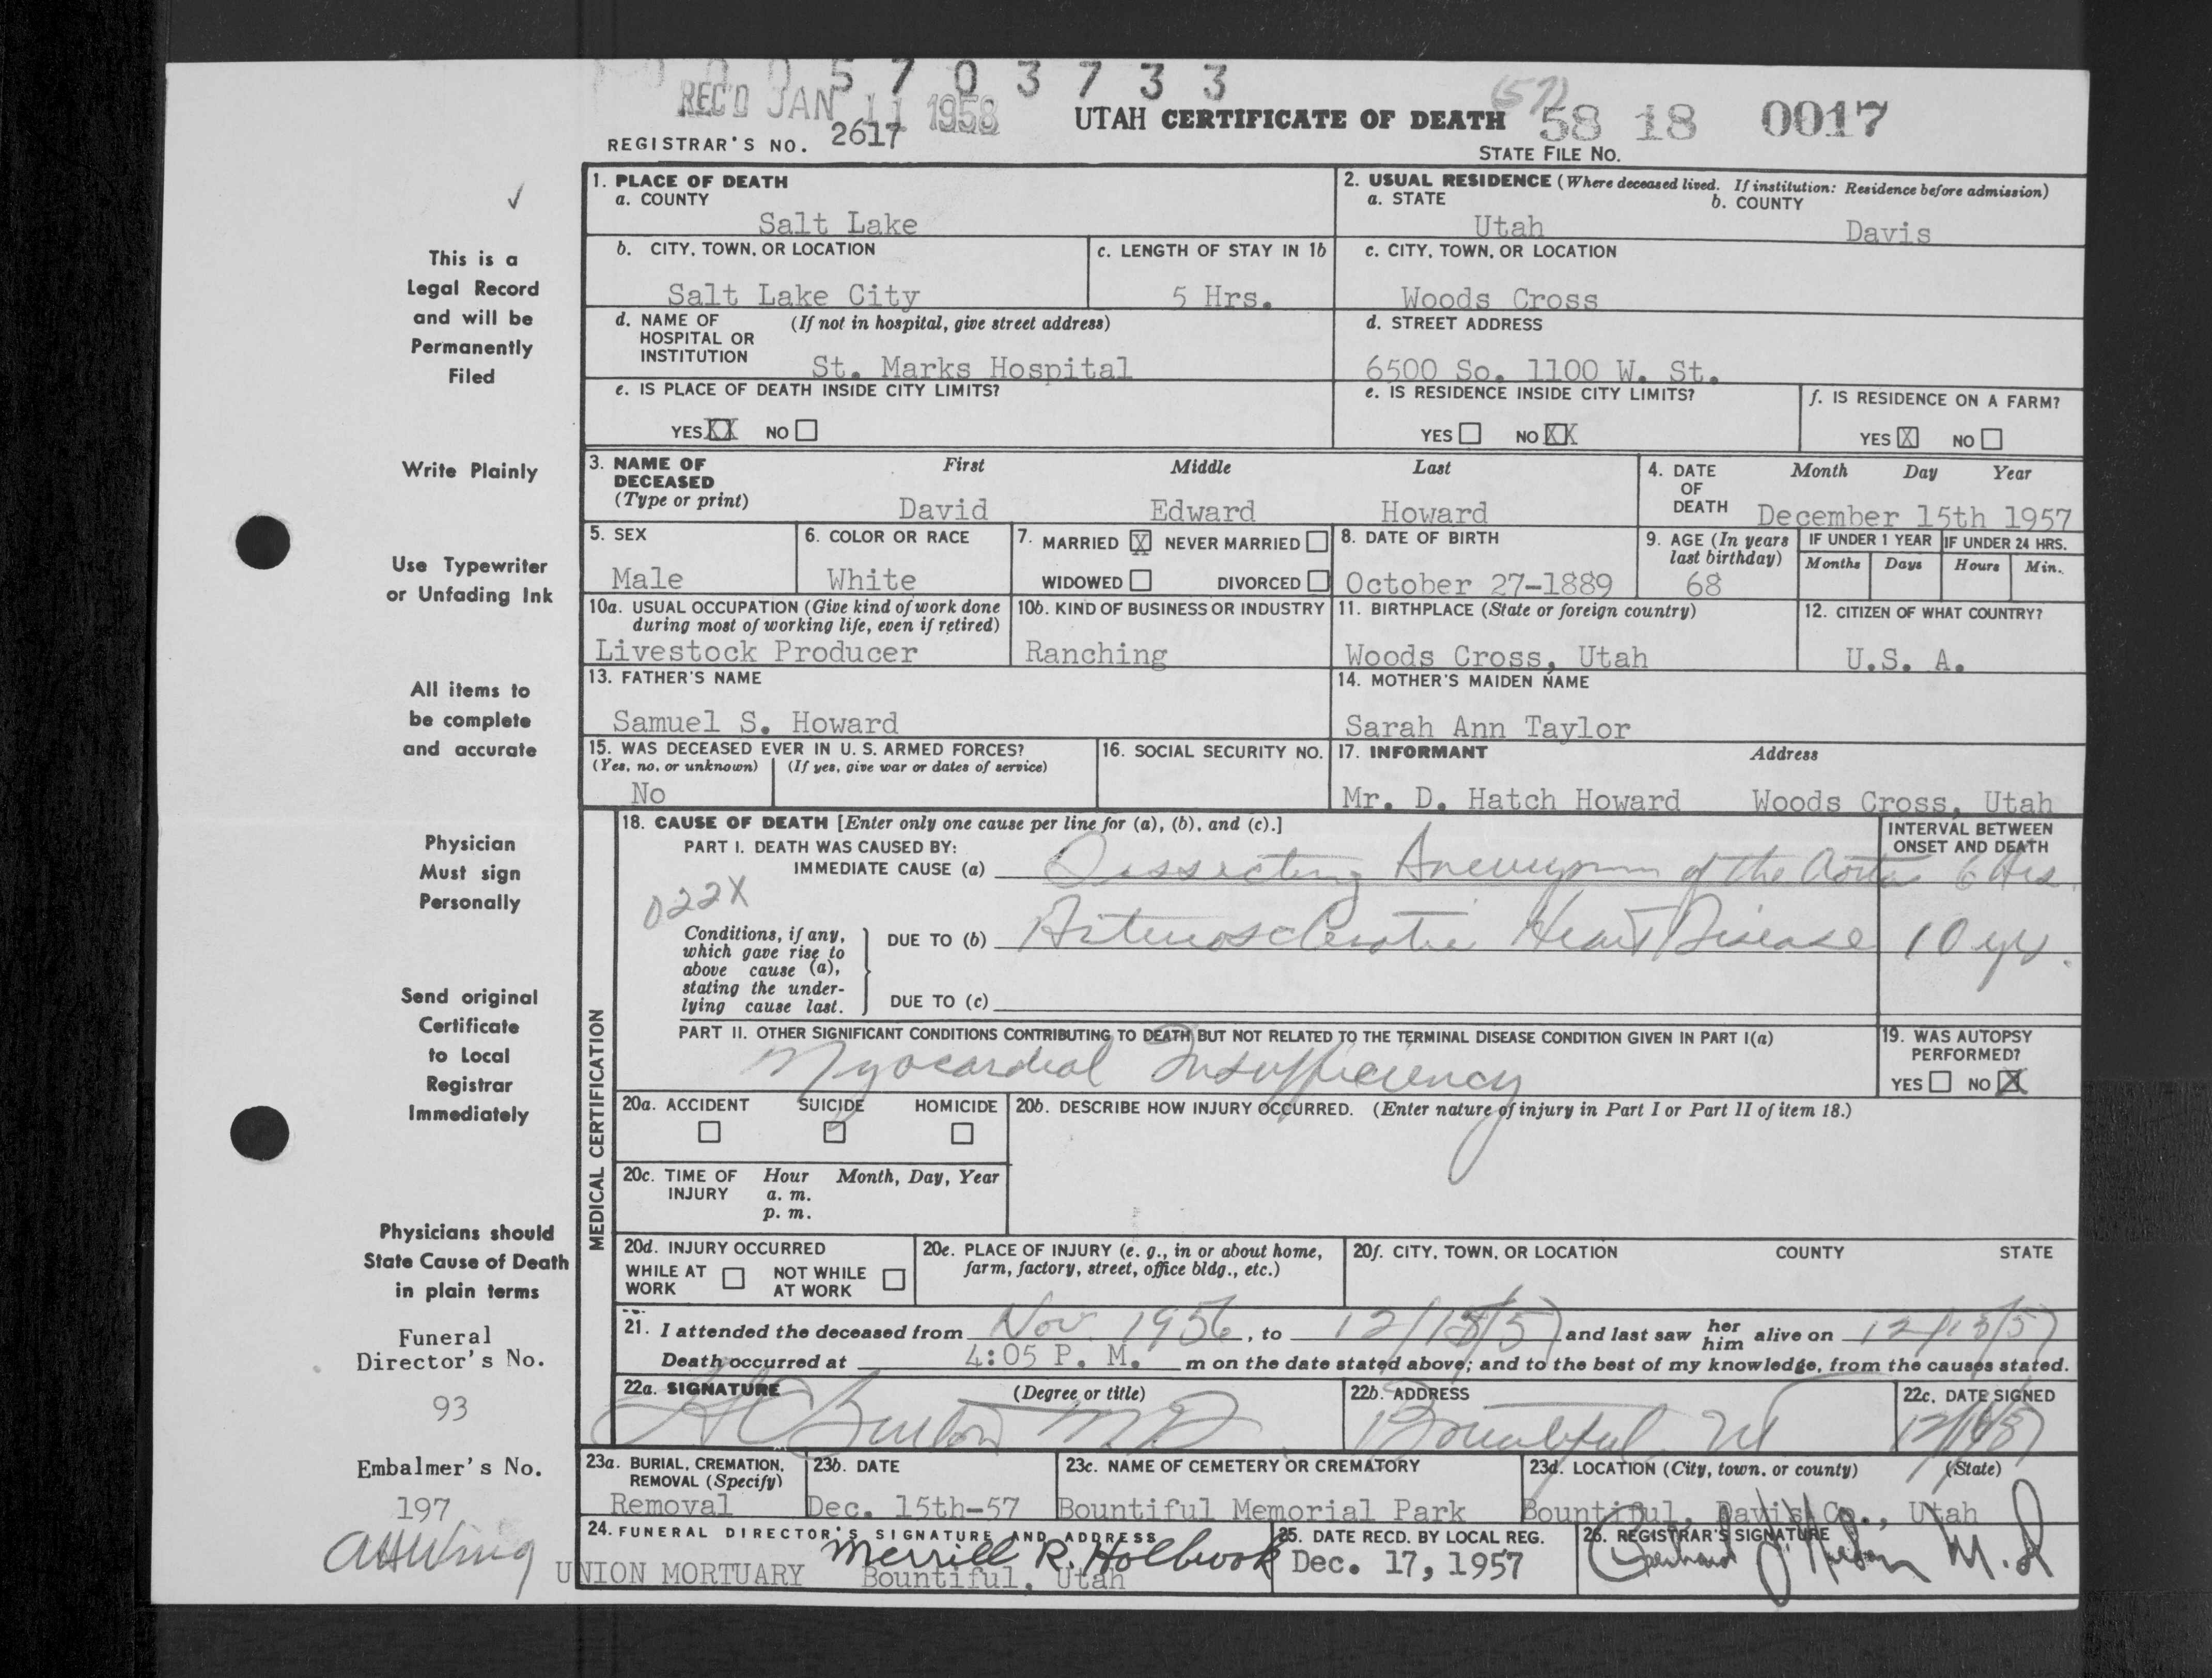 0 0 0 5 7 0 3 7 3 3
REC'D JAN 11 1958
REGISTRAR'S NO. 2617
UTAH CERTIFICATE OF DEATH (57) 58 18 0017
STATE FILE NO.
This is a
Legal Record
and will be
Permanently
Filed
Write Plainly
Use Typewriter
or Unfading Ink
All items to
be complete
and accurate
Physician
Must sign
Personally
Send original
Certificate
to Local
Registrar
Immediately
Physicians should
State Cause of Death
in plain terms
Funeral
Director's No.
93
Embalmer's No.
197
1. PLACE OF DEATH
a. COUNTY
Salt Lake
2. USUAL RESIDENCE (Where deceased lived. If institution: Residence before admission)
a. STATE b. COUNTY
Utah Davis
b. CITY, TOWN, OR LOCATION
Salt Lake City
c. LENGTH OF STAY IN 1b
5 Hrs.
c. CITY, TOWN, OR LOCATION
Woods Cross
d. NAME OF (If not in hospital, give street address)
HOSPITAL OR
INSTITUTION
St. Marks Hospital
d. STREET ADDRESS
6500 So. 1100 W. St.
e. IS PLACE OF DEATH INSIDE CITY LIMITS?
YES XX NO
e. IS RESIDENCE INSIDE CITY LIMITS?
YES NO XX
f. IS RESIDENCE ON A FARM?
YES X NO
3. NAME OF First Middle Last
DECEASED
(Type or print)
David Edward Howard
4. DATE Month Day Year
OF
DEATH
December 15th 1957
5. SEX
Male
6. COLOR OR RACE
White
7. MARRIED X NEVER MARRIED
WIDOWED DIVORCED
8. DATE OF BIRTH
October 27-1889
9. AGE (In years
last birthday)
68
IF UNDER 1 YEAR
Months Days
IF UNDER 24 HRS.
Hours Min.
10a. USUAL OCCUPATION (Give kind of work done
during most of working life, even if retired)
Livestock Producer
10b. KIND OF BUSINESS OR INDUSTRY
Ranching
11. BIRTHPLACE (State or foreign country)
Woods Cross, Utah
12. CITIZEN OF WHAT COUNTRY?
U.S. A.
13. FATHER'S NAME
Samuel S. Howard
14. MOTHER'S MAIDEN NAME
Sarah Ann Taylor
15. WAS DECEASED EVER IN U. S. ARMED FORCES?
(Yes, no, or unknown) (If yes, give war or dates of service)
No
16. SOCIAL SECURITY NO.
17. INFORMANT Address
Mr. D. Hatch Howard Woods Cross, Utah
MEDICAL CERTIFICATION
18. CAUSE OF DEATH [Enter only one cause per line for (a), (b), and (c).]
INTERVAL BETWEEN
ONSET AND DEATH
PART I. DEATH WAS CAUSED BY:
IMMEDIATE CAUSE (a) Dissecting Aneurysm of the Aorta 6 Hrs.
022X
Conditions, if any,
which gave rise to
above cause (a),
stating the under-
lying cause last.
DUE TO (b) Arteriosclerotic Heart Disease 10 yrs.
DUE TO (c)
PART II. OTHER SIGNIFICANT CONDITIONS CONTRIBUTING TO DEATH BUT NOT RELATED TO THE TERMINAL DISEASE CONDITION GIVEN IN PART I(a)
Myocardial Insufficiency
19. WAS AUTOPSY
PERFORMED?
YES NO X
20a. ACCIDENT SUICIDE HOMICIDE
20b. DESCRIBE HOW INJURY OCCURRED. (Enter nature of injury in Part I or Part II of item 18.)
20c. TIME OF Hour Month, Day, Year
INJURY a. m.
p. m.
20d. INJURY OCCURRED
WHILE AT WORK NOT WHILE AT WORK
20e. PLACE OF INJURY (e. g., in or about home,
farm, factory, street, office bldg., etc.)
20f. CITY, TOWN, OR LOCATION COUNTY STATE
21. I attended the deceased from Nov. 1956, to 12/15/57 and last saw her him alive on 12/15/57
Death occurred at 4:05 P. M. m on the date stated above; and to the best of my knowledge, from the causes stated.
22a. SIGNATURE (Degree or title)
M.D.
22b. ADDRESS
Bountiful, Ut
22c. DATE SIGNED
23a. BURIAL, CREMATION,
REMOVAL (Specify)
Removal
23b. DATE
Dec. 15th-57
23c. NAME OF CEMETERY OR CREMATORY
Bountiful Memorial Park
23d. LOCATION (City, town, or county) (State)
Bountiful, Davis Co., Utah
24. FUNERAL DIRECTOR'S SIGNATURE AND ADDRESS
Merrill R. Holbrook
UNION MORTUARY Bountiful, Utah
25. DATE RECD. BY LOCAL REG.
Dec. 17, 1957
26. REGISTRAR'S SIGNATURE
M.D